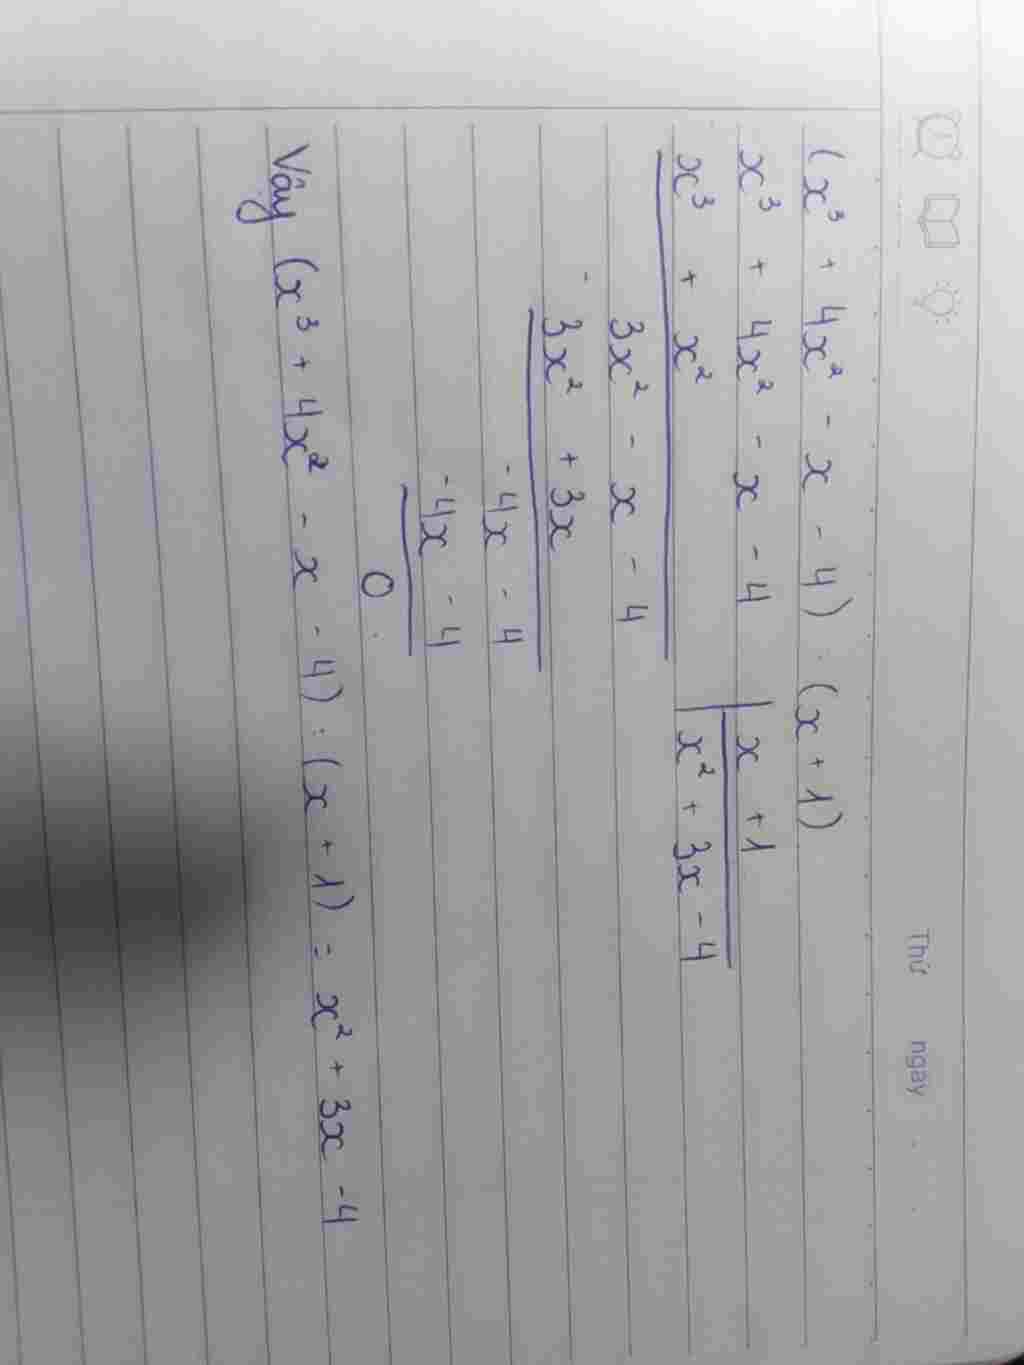 Thứ ngày
(x³ + 4x² - x - 4) : (x + 1)
x³ + 4x² - x - 4 | x + 1
x³ + x² | x² + 3x - 4
3x² - x - 4
- 3x² + 3x
-4x - 4
-4x - 4
0
Vây (x³ + 4x² - x - 4) : (x + 1) = x² + 3x - 4